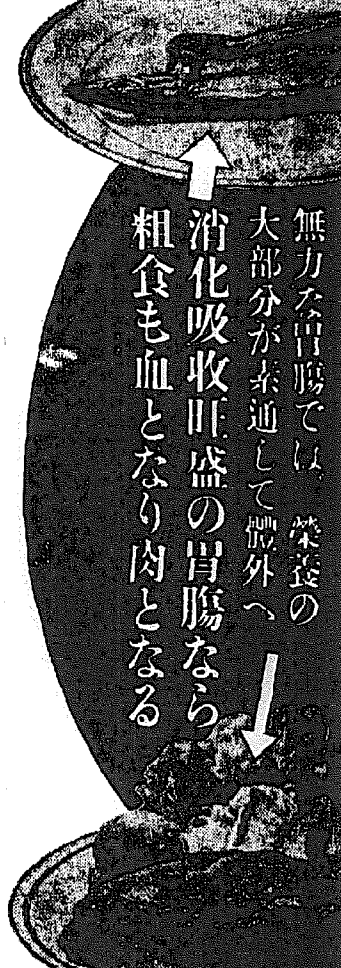 無力な胃腸では、榮養の
大部分が素通して體外へ
消化吸收旺盛の胃腸なら
粗食も血となり肉となる